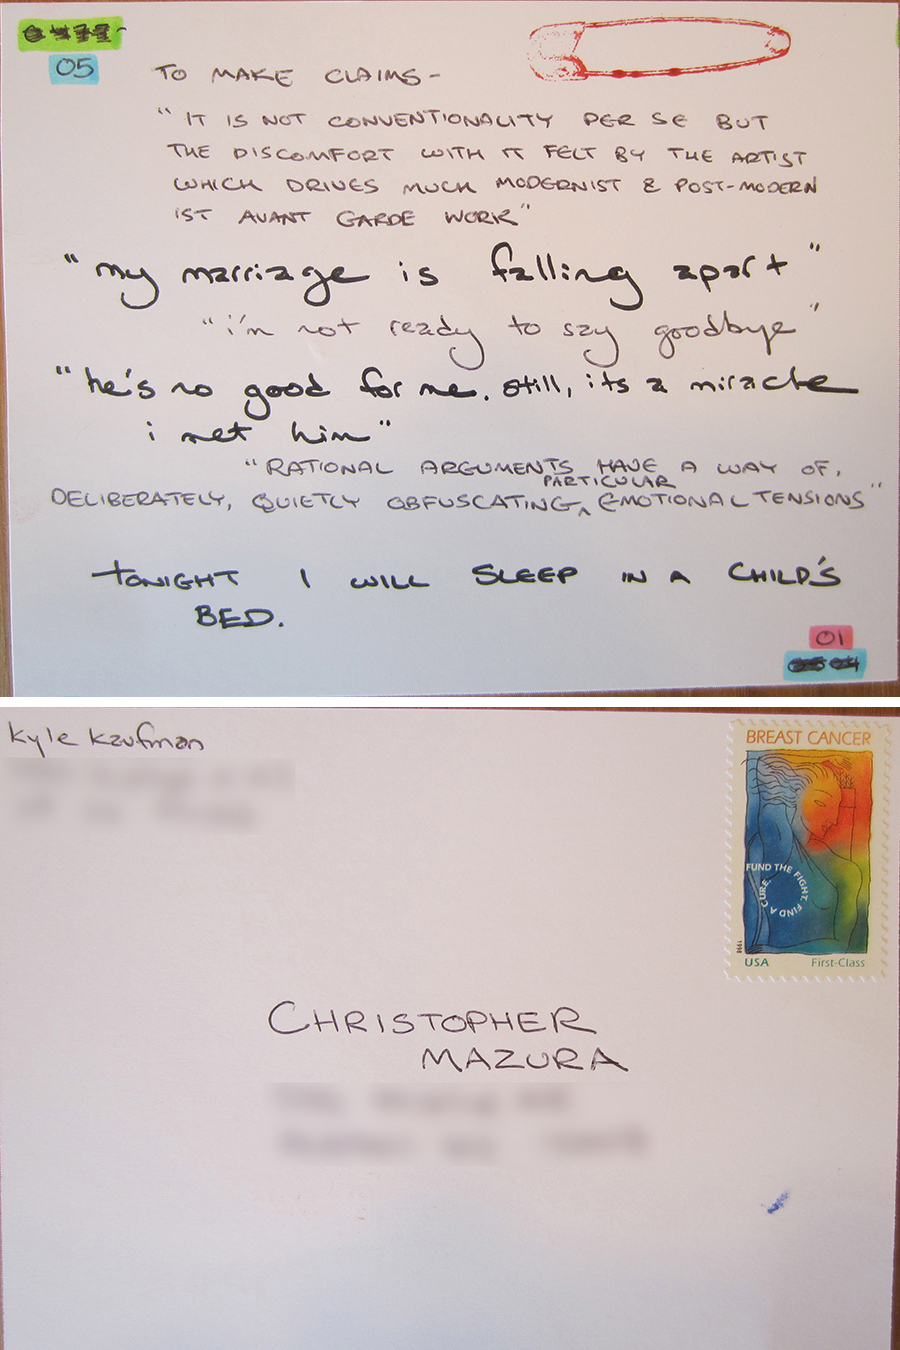 05
TO MAKE CLAIMS-
"IT IS NOT CONVENTIONALITY PER SE BUT
THE DISCOMFORT WITH IT FELT BY THE ARTIST
WHICH DRIVES MUCH MODERNIST & POST-MODERN
IST AVANT GARDE WORK"
"my marriage is falling apart"
"i'm not ready to say goodbye"
"he's no good for me. still, its a miracle
i met him"
"RATIONAL ARGUMENTS HAVE A WAY OF,
DELIBERATELY, QUIETLY OBFUSCATING PARTICULAR EMOTIONAL TENSIONS"
TONIGHT I WILL SLEEP IN A CHILD'S
BED.
01
Kyle Kaufman
BREAST CANCER
FUND THE FIGHT. FIND A CURE.
1998
USA First-Class
CHRISTOPHER
MAZURA